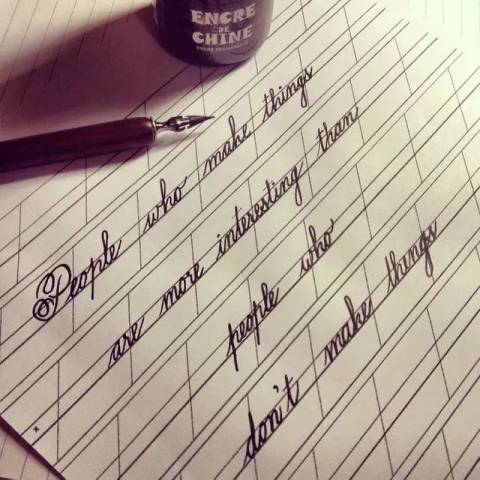 ENCRE
DE
CHINE
People who make things
are more interesting than
people who
don't make things